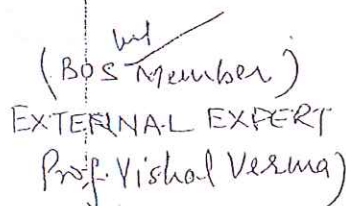 (BOS Member)
EXTERNAL EXPERT
Prof. Vishal Verma)